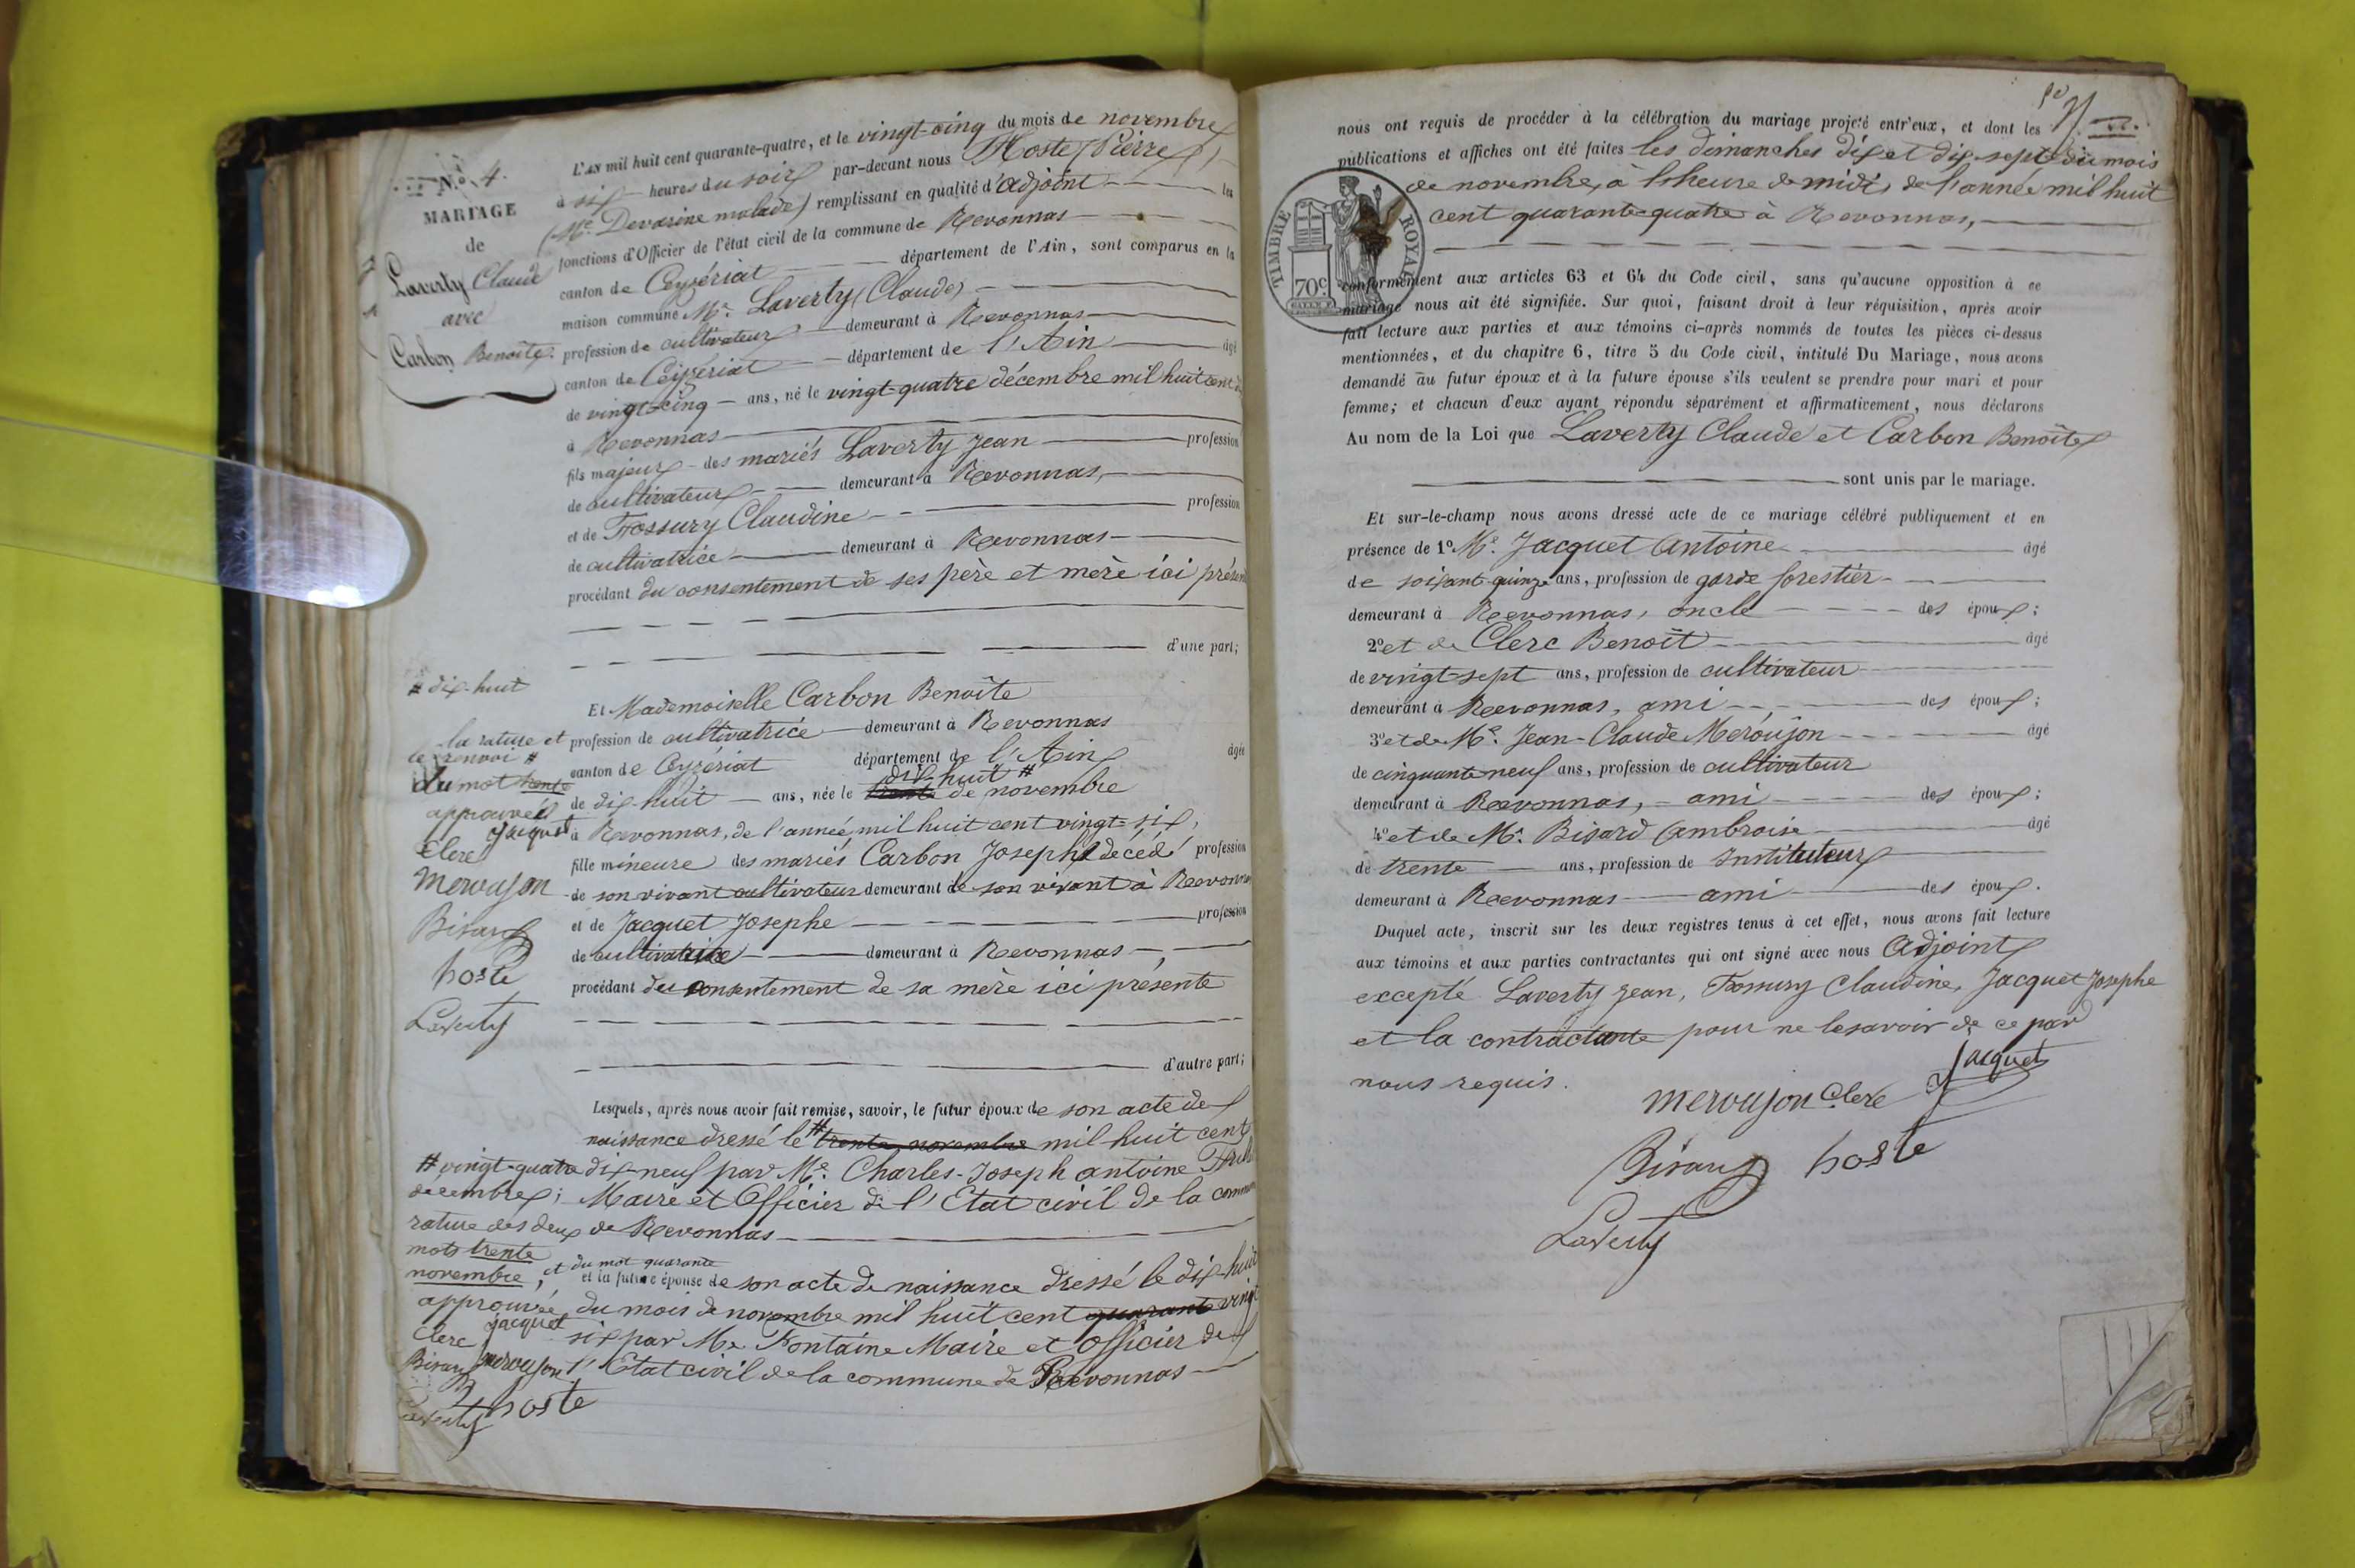 N.o 4.
MARIAGE
de
Laverty Claude
avec
Carbon Benoîte.
L'AN mil huit cent quarante-quatre, et le vingt-cinq du mois de novembre
à six heures du soir par-devant nous Hoste (Pierre)
(Mr. Devarine malade) remplissant en qualité d'adjoint les
fonctions d'Officier de l'état civil de la commune de Revonnas
canton de Ceyzériat département de l'Ain, sont comparus en la
maison commune Mr. Laverty (Claude)
profession de cultivateur demeurant à Revonnas
canton de Ceyzériat département de l'Ain âgé
de vingt-cinq ans, né le vingt-quatre décembre mil huit cent
à Revonnas
fils majeur des mariés Laverty Jean profession
de cultivateur demeurant à Revonnas,
et de Fossury Claudine profession
de cultivatrice demeurant à Revonnas
procédant du consentement de ses père et mère ici présen
d'une part;
# dix-huit
Et Mademoiselle Carbon Benoîte
profession de cultivatrice demeurant à Revonnas
canton de Ceyzériat département de l'Ain âgée
dix-huit #
de dix huit ans, née le trente de novembre
à Revonnas, de l'année mil huit cent vingt-six,
fille mineure des mariés Carbon Joseph décédé profession
de son vivant cultivateur demeurant de son vivant à Revonnas
et de Jacquet Josephe profession
de cultivatrice demeurant à Revonnas
procédant du consentement de sa mère ici présente
d'autre part;
la rature et
le renvoi #
du mot trente
approuvés
Jacquet
Clerc
Merouson
Bisard
hoste
Laverty
Lesquels, après nous avoir fait remise, savoir, le futur époux de son acte de
naissance dressé le # trente novembre mil huit cent
dix-neuf par Mr. Charles-Joseph antoine
Maire et Officier de l'Etat civil de la commune
de Revonnas
et la future épouse de son acte de naissance dressé le dix-huit
du mois de novembre mil huit cent quarante vingt
six par Mr. Fontaine Maire et officier de
l'Etat civil de la commune de Revonnas
# vingt-quatre
décembre;
rature des deux
mots trente
novembre, et du mot quarante
approuvée
Jacquet
Clerc
Bisard Merouson
Laverty hoste
nous ont requis de procéder à la célébration du mariage projeté entr'eux, et dont les
publications et affiches ont été faites les dimanches dix et dix-sept du mois
de novembre, à l'heure de midi, de l'année mil huit
cent quarante-quatre à Revonnas,
TIMBRE ROYAL
70c
conformément aux articles 63 et 64 du Code civil, sans qu'aucune opposition à ce
mariage nous ait été signifiée. Sur quoi, faisant droit à leur réquisition, après avoir
fait lecture aux parties et aux témoins ci-après nommés de toutes les pièces ci-dessus
mentionnées, et du chapitre 6, titre 5 du Code civil, intitulé Du Mariage, nous avons
demandé au futur époux et à la future épouse s'ils veulent se prendre pour mari et pour
femme; et chacun d'eux ayant répondu séparément et affirmativement, nous déclarons
Au nom de la Loi que Laverty Claude et Carbon Benoîte
sont unis par le mariage.
Et sur-le-champ nous avons dressé acte de ce mariage célébré publiquement et en
présence de 1o Mr. Jacquet Antoine âgé
de soixante-quinze ans, profession de garde forestier
demeurant à Revonnas, oncle des époux;
2o et de Clerc Benoît âgé
de vingt-sept ans, profession de cultivateur
demeurant à Revonnas, ami des époux;
3o et de Mr. Jean-Claude Merouson âgé
de cinquante-neuf ans, profession de cultivateur
demeurant à Revonnas, ami des époux;
4o et de Mr. Bisard Ambroise âgé
de trente ans, profession de Instituteur
demeurant à Revonnas ami des époux.
Duquel acte, inscrit sur les deux registres tenus à cet effet, nous avons fait lecture
aux témoins et aux parties contractantes qui ont signé avec nous Adjoint
excepté Laverty Jean, Fossury Claudine, Jacquet Josephe
et la contractante pour ne le savoir de ce par
nous requis.
Jacquet
Merouson Clerc
Bisard hoste
Laverty